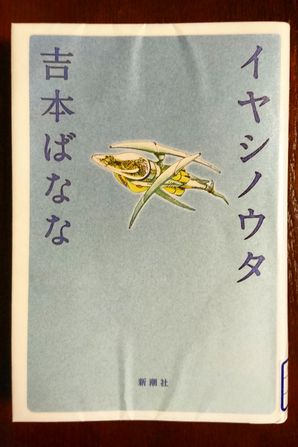 イヤシノウタ
吉本ばなな
新潮社